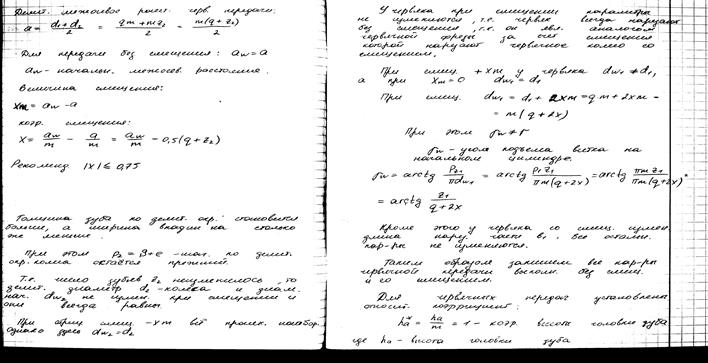 Делит. межосевое расст. черв. передачи:
a = (d₁+d₂)/2 = (qm+mz₂)/2 = m(q+z₂)/2
Для передачи без смещения: aw = a
aw - начальн. межосев. расстояние.
Величина смещения:
xm = aw - a
коэф. смещения:
X = aw/m - a/m = aw/m - 0,5(q+z₂)
Рекоменд |x| ≤ 0,75
Толщина зуба по делит. окр. становится
больше, а ширина впадин на столько
же меньше.
При этом P₂ = + e - шаг. по делит.
окр. колеса остаётся прежний.
Т.е. число зубьев z₂ неизменилось, то
делит. диаметр d₂ - колеса и диам.
нач. dw₂ не измен. при смещении и
они всегда равны.
При отриц смещ. -xm всё наобор.
однако здесь dw₂ = d₂
У червяка при смещении параметры
не изменяются, т.е. червяк всегда нарезают
без смещения, т.к. он явл. аналогом
червячной фрезы за счет смещения
которой нарезают червячное колесо со
смещением.
При смещ. +xm у червяка dw₁ ≠ d₁,
а при xm = 0 dw₁ = d₁
При смещ. dw₁ = d₁ + 2xm = qm + 2xm =
= m(q+2x)
При этом γw ≠ γ
γw - угол подъема витка на
начальном цилиндре.
γw = arctg Pz₁/πdw₁ = arctg P₁z₁/πm(q+2x) = arctg πmz₁/πm(q+2x) =
= arctg z₁/(q+2x)
Кроме этого у червяка со смещ. измен.
длина нарез. части b₁. Все остальн.
пар-ры не изменяются.
Таким образом запишем все пар-ры
червячной передачи выполн. без смещ.
и со смещением.
Для червячных передач установлены
относит. коэффициент:
ha* = ha/m = 1 - коэф. высоты головки зуба
где ha - высота головки зуба